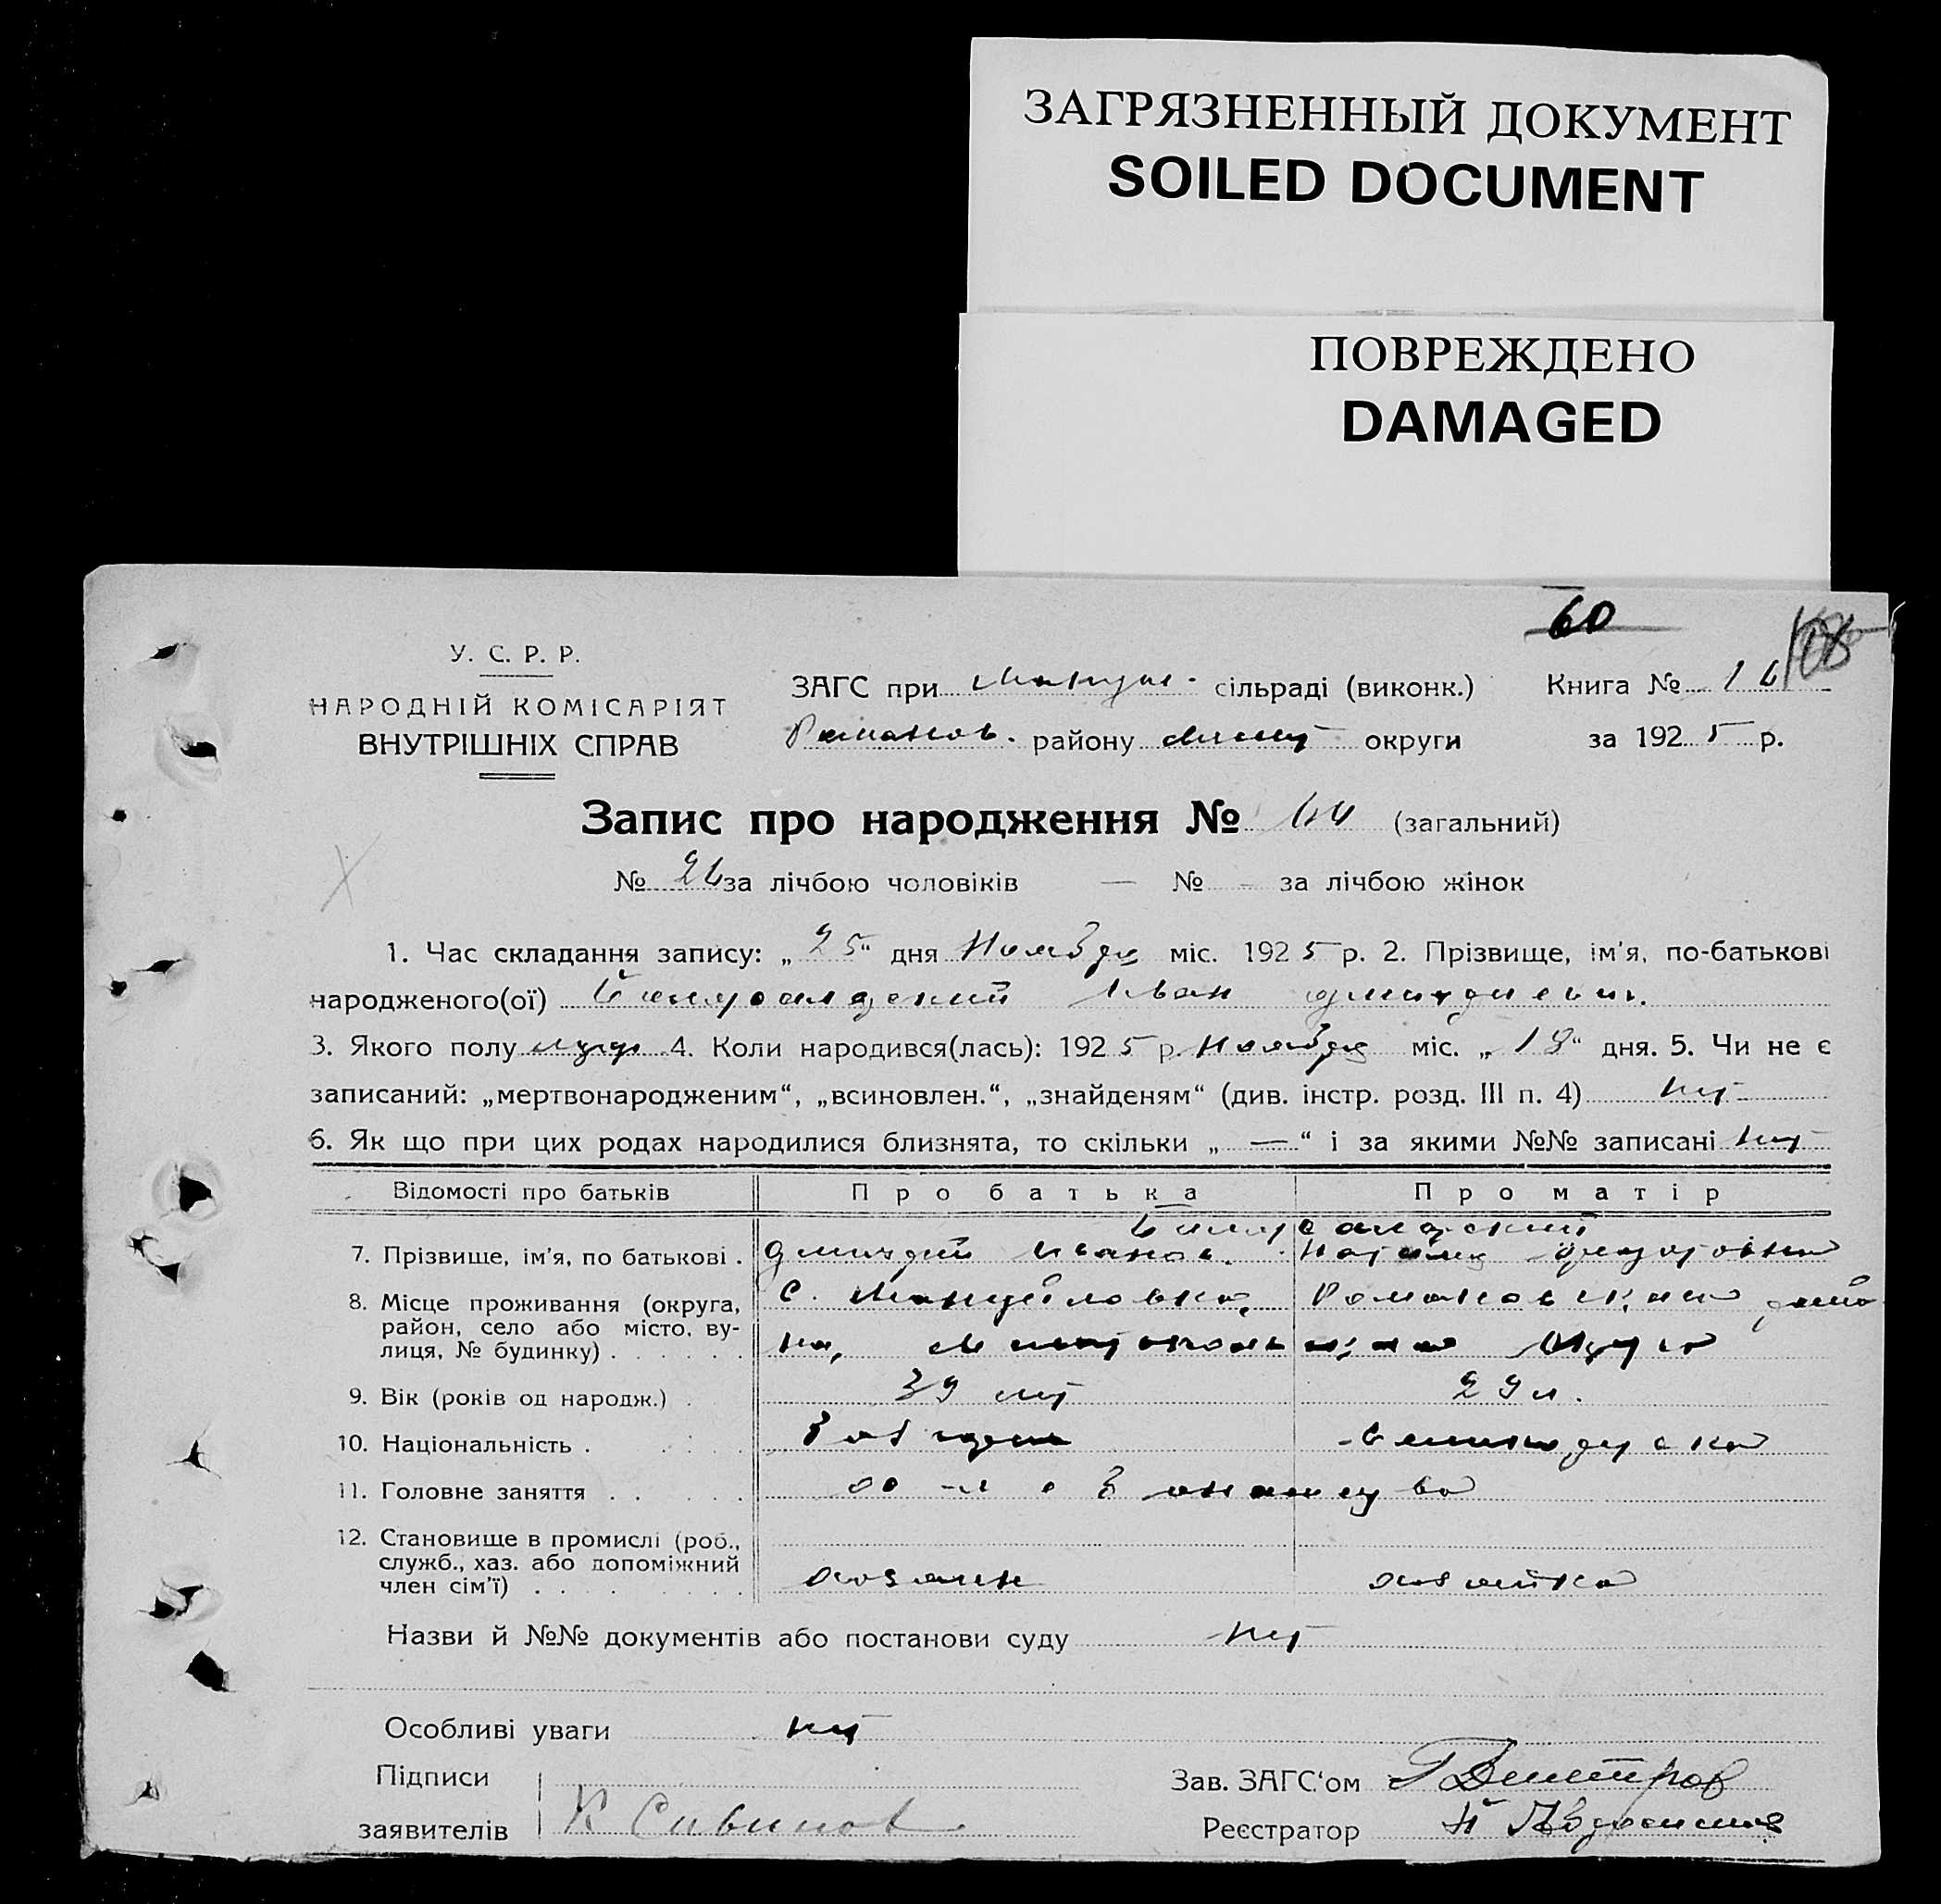 ЗАГРЯЗНЕННЫЙ ДОКУМЕНТ
SOILED DOCUMENT
ПОВРЕЖДЕНО
DAMAGED
60
У. С. Р. Р.
НАРОДНІЙ КОМІСАРІЯТ
ВНУТРІШНІХ СПРАВ
ЗАГС при сільраді (виконк.) Книга №
Романов. району округи за 1925 р.
Запис про народження № (загальний)
№ за лічбою чоловіків — № - за лічбою жінок
1. Час складання запису: „25“ дня Ноября міс. 1925 р. 2. Прізвище, ім'я, по-батькові
народженого(ої) Иван
3. Якого полу муж. 4. Коли народився(лась): 1925 р. Ноября міс. „18“ дня. 5. Чи не є
записаний: „мертвонародженим“, „всиновлен.“, „знайденям“ (див. інстр. розд. III п. 4) нет
6. Як що при цих родах народилися близнята, то скільки „—“ і за якими №№ записані нет
Відомості про батьків Про батька Про матір
7. Прізвище, ім'я, по батькові . Дмитрий Иванов. Федотовна
8. Місце проживання (округа, район, село або місто, вулиця, № будинку) С. Мануйловка, Романовского района, Мелитопольского Округа
9. Вік (років од народж.) . 39 лет 29 л.
10. Національність .
11. Головне заняття
12. Становище в промислі (роб., служб., хаз. або допоміжний член сім'ї) хозяин хозяйка
Назви й №№ документів або постанови суду нет
Особливі уваги нет
Підписи
заявителів
Зав. ЗАГС‘ом Дмитров
Реєстратор